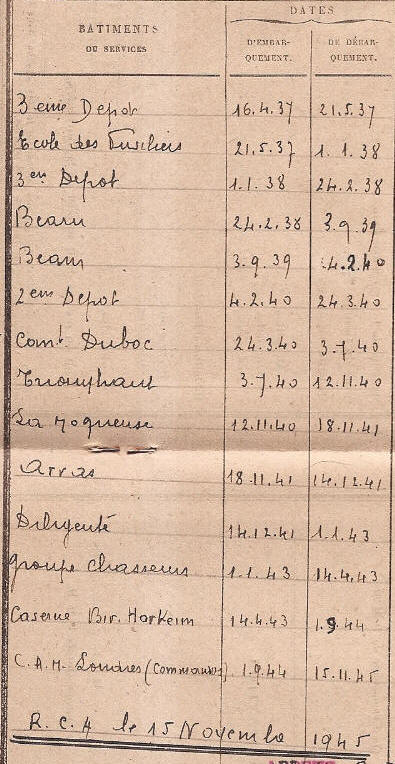 BÂTIMENTS
OU SERVICES
DATES
D'EMBAR-
QUEMENT.
DE DÉBAR-
QUEMENT.
3eme Depot 16.4.37 21.5.37
Ecole des Fusiliers 21.5.37 1.1.38
3em Depot 1.1.38 24.2.38
Bearn 24.2.38 3.9.39
Bearn 3.9.39 4.2.40
2em Depot 4.2.40 24.3.40
Comt Duboc 24.3.40 3.7.40
Triomphant 3.7.40 12.11.40
La Moqueuse 12.11.40 18.11.41
Arras 18.11.41 14.12.41
Diligente 14.12.41 1.1.43
groupe Chasseurs 1.1.43 14.4.43
Caserne Bir. Harkeim 14.4.43 1.9.44
C.A.M. Londres (Commandos) 1.9.44 15.11.45
R.C.A le 15 Novembre 1945